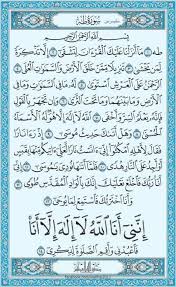 سُورَةُ طه
بِسْمِ اللَّهِ الرَّحْمَٰنِ الرَّحِيمِ
طه ۝١ مَا أَنزَلْنَا عَلَيْكَ الْقُرْءَانَ لِتَشْقَىٰ ۝٢ إِلَّا تَذْكِرَةً
لِّمَن يَخْشَىٰ ۝٣ تَنزِيلًا مِّمَّنْ خَلَقَ الْأَرْضَ وَالسَّمَٰوَٰتِ الْعُلَى ۝٤
الرَّحْمَٰنُ عَلَى الْعَرْشِ اسْتَوَىٰ ۝٥ لَهُ مَا فِي السَّمَٰوَٰتِ وَمَا فِي
الْأَرْضِ وَمَا بَيْنَهُمَا وَمَا تَحْتَ الثَّرَىٰ ۝٦ وَإِن تَجْهَرْ بِالْقَوْلِ
فَإِنَّهُ يَعْلَمُ السِّرَّ وَأَخْفَى ۝٧ اللَّهُ لَا إِلَٰهَ إِلَّا هُوَ لَهُ الْأَسْمَاءُ
الْحُسْنَىٰ ۝٨ وَهَلْ أَتَىٰكَ حَدِيثُ مُوسَىٰ ۝٩ إِذْ رَءَا نَارًا فَقَالَ
لِأَهْلِهِ امْكُثُوا إِنِّي ءَانَسْتُ نَارًا لَّعَلِّي ءَاتِيكُم مِّنْهَا بِقَبَسٍ
أَوْ أَجِدُ عَلَى النَّارِ هُدًى ۝١٠ فَلَمَّا أَتَىٰهَا نُودِيَ يَٰمُوسَىٰ ۝١١ إِنِّي
أَنَا رَبُّكَ فَاخْلَعْ نَعْلَيْكَ إِنَّكَ بِالْوَادِ الْمُقَدَّسِ طُوًى ۝١٢
وَأَنَا اخْتَرْتُكَ فَاسْتَمِعْ لِمَا يُوحَىٰ ۝١٣
إِنَّنِي أَنَا اللَّهُ لَا إِلَٰهَ إِلَّا أَنَا
فَاعْبُدْنِي وَأَقِمِ الصَّلَوٰةَ لِذِكْرِي ۝١٤